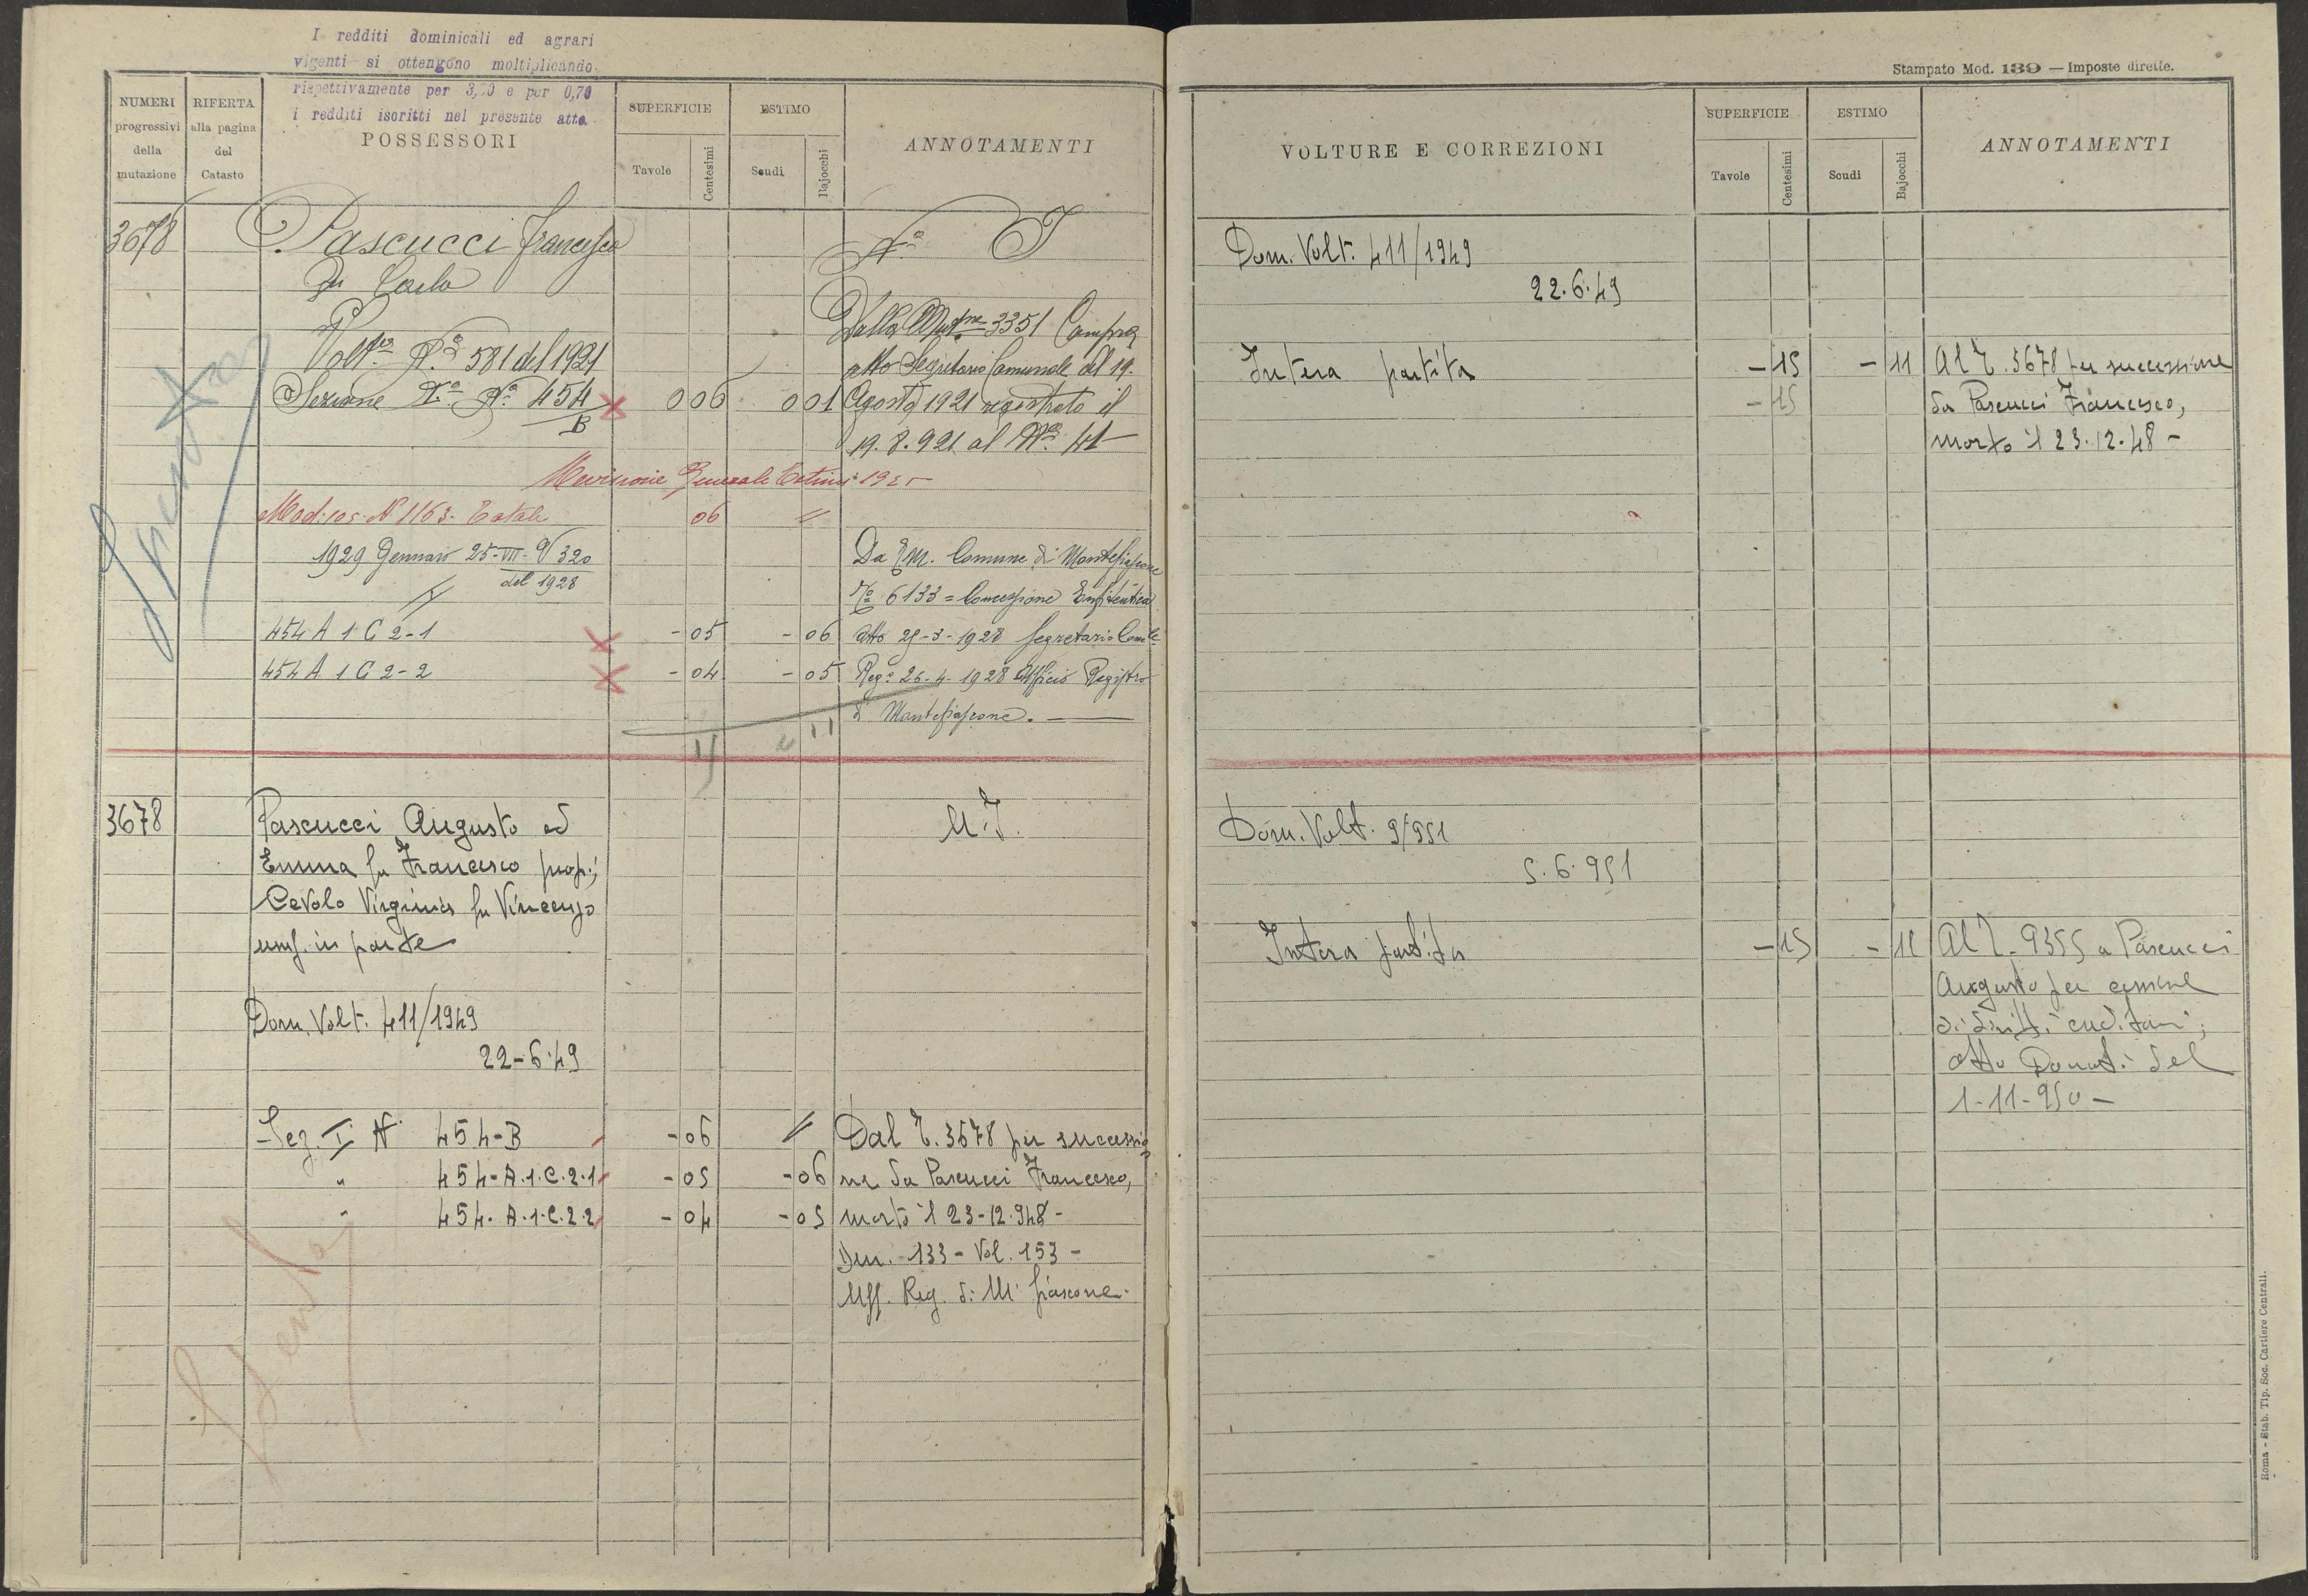 I redditi dominicali ed agrari
vigenti si ottengono moltiplicando
rispettivamente per 3,20 e per 0,70
i redditi iscritti nel presente atto.
NUMERI
progressivi
della
mutazione
RIFERTA
alla pagina
del
Catasto
POSSESSORI
SUPERFICIE
Tavole
Centesimi
ESTIMO
Scudi
Bajocchi
ANNOTAMENTI
3678
Pascucci Francesco
Di Carlo
N.o I
Dalla 3351 Compra
Volt.a N.o 581 del 1921
atto Segretario Comunale del 19.
Sezione N.o 454 0 06 0 01 Agosto 1921 registrato il
B
19.8.921 al N.o 41
Revisione Generale Estimi 192
Mod. 105. N 1163. Totale 06 "
1929 Gennaio 25-VII- 320
del 1928
Da Comune di Montefiascone
6133 = Concessione Enfiteutica
454 A 1 C 2-1 - 05 - 06 atto 29-3-1928 Segretario Com.le
454 A 1 C 2-2 - 04 - 05 Reg.o 26-4-1928 Ufficio Registro
di Montefiascone.
15 " 11
3678
Pascucci Augusto ed
Emma fu Francesco prop.;
Cevolo Virginia fu Vincenzo
usuf. in parte
Dom. Volt. 411/1949
22-6-49
Sez. I N. 454-B - 06 " Dal T. 3678 per successio
" 454-A.1.C.2.1 - 05 - 06 ne da Pascucci Francesco,
" 454-A.1.C.2.2 - 04 - 05 morto il 23-12-948-
Den. 133 - Vol. 153 -
Uff. Reg. di M. fiascone.
Stampato Mod. 139 — Imposte dirette.
VOLTURE E CORREZIONI
SUPERFICIE
Tavole
Centesimi
ESTIMO
Scudi
Bajocchi
ANNOTAMENTI
Dom. Volt. 411/1949
22.6.49
Intera partita - 15 - 11 Al T. 3678 per successione
- 15 da Pascucci Francesco,
morto il 23.12.48 -
Dom. Volt. 9/951
5.6.951
Intera partita - 15 - 11 Al T. 9355 a Pascucci
Augusto per cessione
di diritti ereditari;
atto Donati del
1-11-950 -
Roma - Stab. Tip. Soc. Cartiere Centrali.